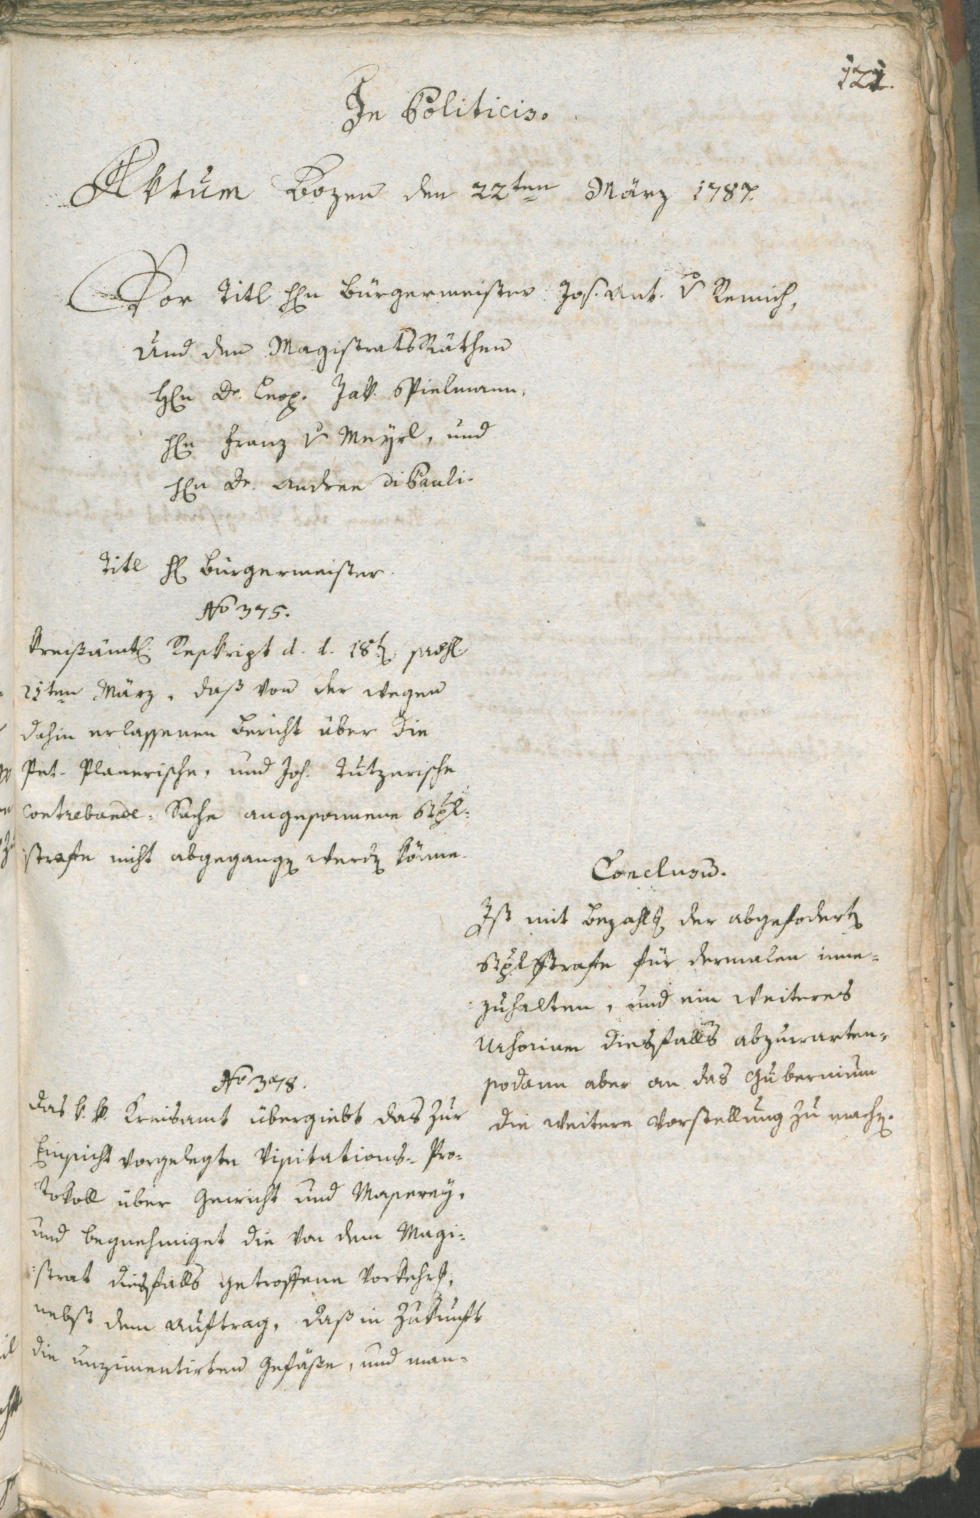 121.
In Politicis.
Aktum Bozen den 22ten März 1787.
Vor Titl Hn Bürgermeister Jos. Ant. v Remich,
und den MagistratsRäthen
Hn Dr. Leop. Jak. Spielmann,
Hn Franz v Meyrl, und
Hn Dr. Andree di Pauli.
Titl H Bürgermeister
No 375.
Kreißämtl. Reskript d. d. 18t
21ten März, daß von der wegen
dahin erlassenen Bericht über die
Pet. Planerische, und Joh. Tutzerische
Contrebande-Sache angesonnene
strafe nicht abgegang werd könne.
Conclusu.
Ist mit Bezahl der abgefodert
strafe für dermalen inne-
zuhalten, und ein weiteres
diesfalls abzuwarten,
sodann aber an das Gubernium
die weitere Vorstellung zu mach.
No 378.
Das k. k. Kreisamt übergiebt das zur
Einsicht vorgelegte Visitations-Pro-
tokoll über Gewicht und Masserey,
und begnehmiget die von dem Magi-
strat diesfalls getroffene Vorkehr,
nebst dem Auftrag, daß in Zukunft
die unzimentirten Gefäße, und man-